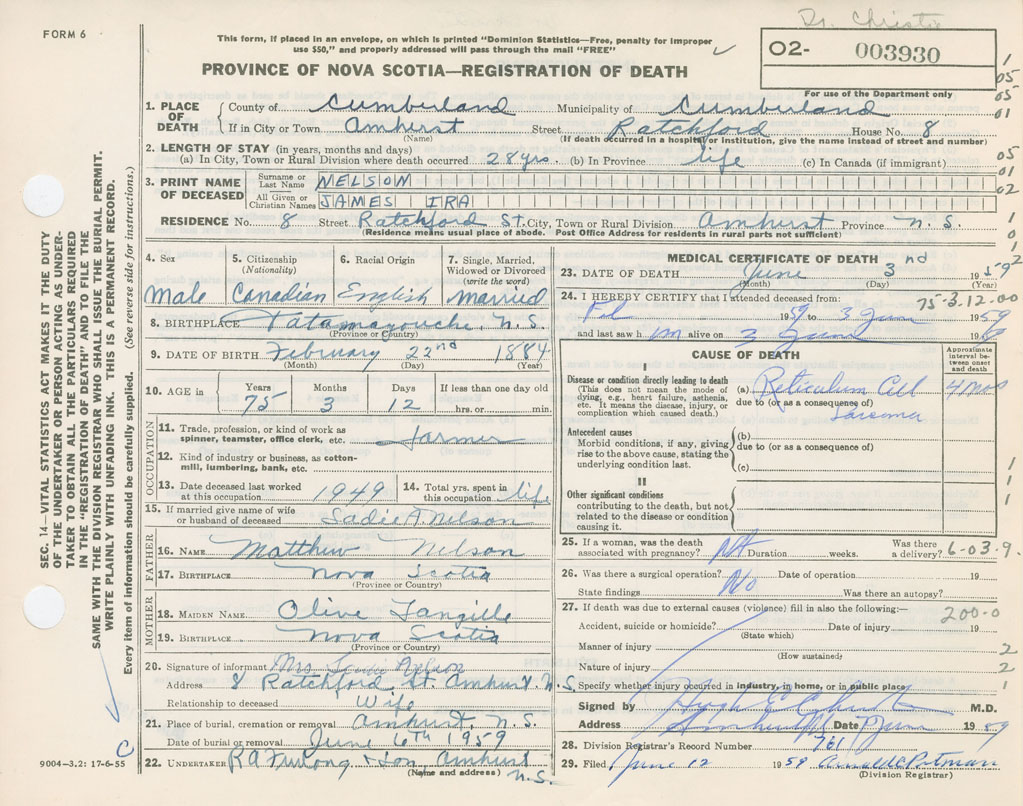 Dr. Christie
FORM 6
This form, if placed in an envelope, on which is printed "Dominion Statistics—Free, penalty for improper
use $50," and properly addressed will pass through the mail "FREE"
O2- 003930
For use of the Department only
PROVINCE OF NOVA SCOTIA—REGISTRATION OF DEATH
1. PLACE OF DEATH { County of Cumberland Municipality of Cumberland
If in City or Town Amherst Street Ratchford House No. 8
(Name) (If death occurred in a hospital or institution, give the name instead of street and number)
2. LENGTH OF STAY (in years, months and days)
(a) In City, Town or Rural Division where death occurred 28 yrs. (b) In Province life (c) In Canada (if immigrant)
3. PRINT NAME OF DECEASED Surname or Last Name NELSON
All Given or Christian Names JAMES IRA
RESIDENCE No. 8 Street Ratchford St. City, Town or Rural Division Amherst Province N.S.
(Residence means usual place of abode. Post Office Address for residents in rural parts not sufficient)
4. Sex Male
5. Citizenship (Nationality) Canadian
6. Racial Origin English
7. Single, Married, Widowed or Divorced (write the word) Married
8. BIRTHPLACE Tatamagouche, N.S.
(Province or Country)
9. DATE OF BIRTH February 22nd 1884
(Month) (Day) (Year)
10. AGE in Years 75 Months 3 Days 12 If less than one day old hrs. or min.
OCCUPATION
11. Trade, profession, or kind of work as spinner, teamster, office clerk, etc. Farmer
12. Kind of industry or business, as cotton-mill, lumbering, bank, etc.
13. Date deceased last worked at this occupation 1949
14. Total yrs. spent in this occupation life
15. If married give name of wife or husband of deceased Sadie A Nelson
FATHER
16. NAME Matthew Nelson
17. BIRTHPLACE Nova Scotia
(Province or Country)
MOTHER
18. MAIDEN NAME Olive Langille
19. BIRTHPLACE Nova Scotia
(Province or Country)
20. Signature of informant Mrs. Sadie Nelson
Address 8 Ratchford St. Amherst N.S.
Relationship to deceased Wife
21. Place of burial, cremation or removal Amherst, N.S.
Date of burial or removal June 6TH 1959
22. UNDERTAKER R A Furlong & Son, Amherst
(Name and address) N.S.
MEDICAL CERTIFICATE OF DEATH
23. DATE OF DEATH June 3nd 1959
(Month) (Day) (Year)
24. I HEREBY CERTIFY that I attended deceased from: 75-3.12-00
Feb 1959 to 3 June 1959
and last saw h im alive on 3 June 19
CAUSE OF DEATH
Approximate interval between onset and death
I
Disease or condition directly leading to death
(This does not mean the mode of dying, e.g., heart failure, asthenia, etc. It means the disease, injury, or complication which caused death.)
(a) Reticulum Cell Sarcoma 4 mos
due to (or as a consequence of)
Antecedent causes
Morbid conditions, if any, giving rise to the above cause, stating the underlying condition last.
(b)
due to (or as a consequence of)
(c)
II
Other significant conditions
contributing to the death, but not related to the disease or condition causing it.
25. If a woman, was the death associated with pregnancy? Duration weeks. Was there a delivery? 6-03.9.
26. Was there a surgical operation? No Date of operation 19
State findings Was there an autopsy?
27. If death was due to external causes (violence) fill in also the following:— 200-0
Accident, suicide or homicide? Date of injury 19
(State which)
Manner of injury
(How sustained)
Nature of injury
Specify whether injury occurred in industry, in home, or in public place
Signed by Hugh E Christie M.D.
Address Amherst NS Date 7 June 1959
28. Division Registrar's Record Number 761
29. Filed June 12 1959
(Division Registrar)
SEC. 14—VITAL STATISTICS ACT MAKES IT THE DUTY
OF THE UNDERTAKER OR PERSON ACTING AS UNDER-
TAKER TO OBTAIN ALL THE PARTICULARS REQUIRED
IN THE "REGISTRATION OF DEATH" AND TO FILE THE
SAME WITH THE DIVISION REGISTRAR WHO SHALL ISSUE THE BURIAL PERMIT.
WRITE PLAINLY WITH UNFADING INK. THIS IS A PERMANENT RECORD.
Every item of information should be carefully supplied. (See reverse side for instructions.)
C
9004—3.2: 17-6-55
1
05
05
01
05
01
02
1
0
1
2
1
1
1
2
2
1